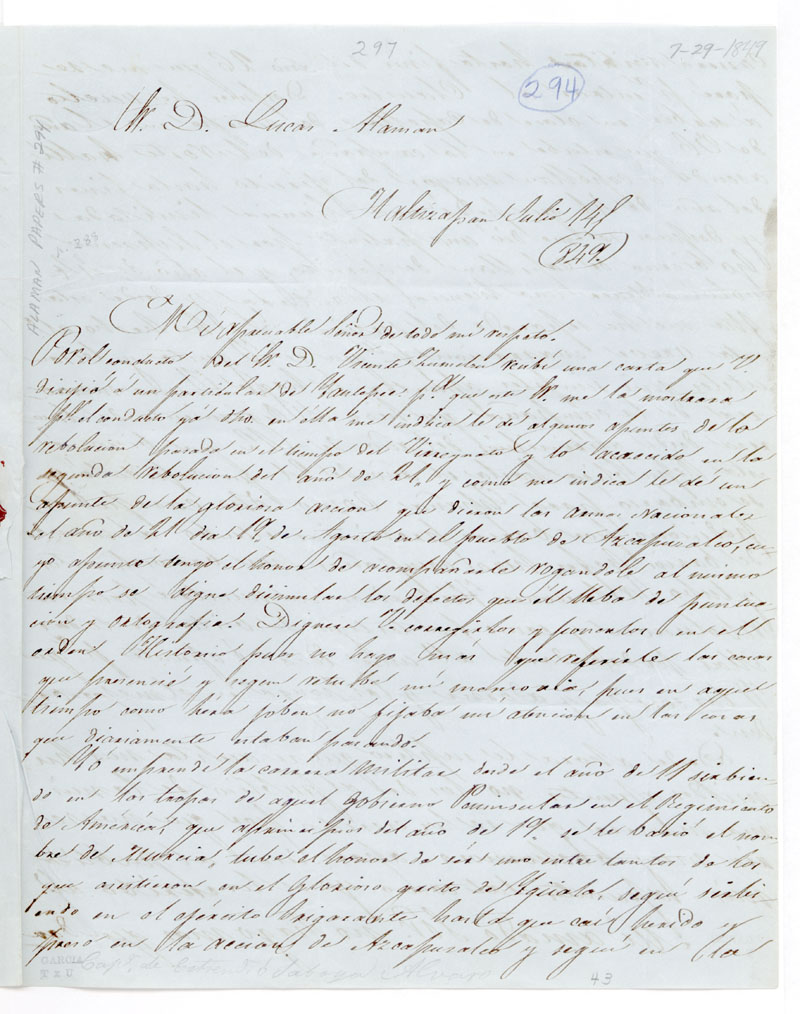 297
7-29-1849
294
S. D. Lucas Alaman
ALAMAN PAPERS # 294
Julio
849.
Mi apreciable Señor de todo mi respeto.
Por el conducto del S. D. Vicente recibí una carta que V.
dirigió á un particular de pª que este S. me la mostrara
pr. el conducto ya dho. en ella me indica le dé algunos apuntes de la
rebolucion pasada en el tiempo del Virreynato y lo acaecido en la
segunda rebolucion del año de 21, y como me indica le dé un
apunte de la gloriosa accion que dieron las armas Nacionales
el año de 21 dia 19 de Agosto en el pueblo de Azcapusalco, cu-
yo apunte tengo el honor de acompañarle rogandole al mismo
tiempo se digne disimular los defectos que él lleba de puntua
cion y ortografia. Dignese V. corregirlos y ponerlos en el
orden Historia pues no hago más que referirle las cosas
que presencié y segun retube mi memoria, pues en aquel
tiempo como hera joben no fijaba mi atencion en las cosas
que diariamente estaban pasando.
Yó emprendí la carrera Militar desde el año de 11 sirbien-
do en las tropas de aquel Gobierno Peninsular en el Regimiento
de America, que a principios del año de 19. se le barió el nom-
bre de Murcia, tube el honor de sér uno entre tantos de los
que asistieron en el Glorioso grito de Yguala, seguí sirbi-
endo en el ejército Trigarante hasta que caí herido y
preso en la accion de Azcapusalco y seguí en la
GARCIA
TxU
43